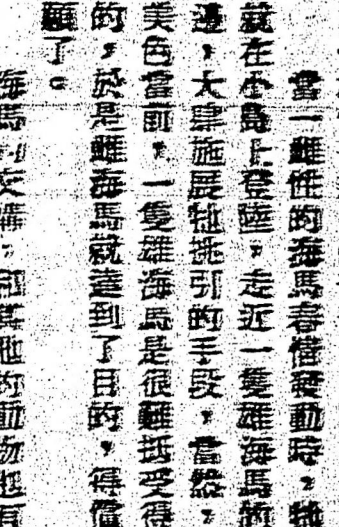 當一雌性的海馬春情發動時，牠
就在小島上登陸，走近一隻雄海馬的
邊，大肆施展牠挑引的手段，當然，
美色當前，一隻雄海馬是很難抵受得
的，於是雌海馬就達到了目的，得償
願了。
海馬的交媾，和其他的動物也有